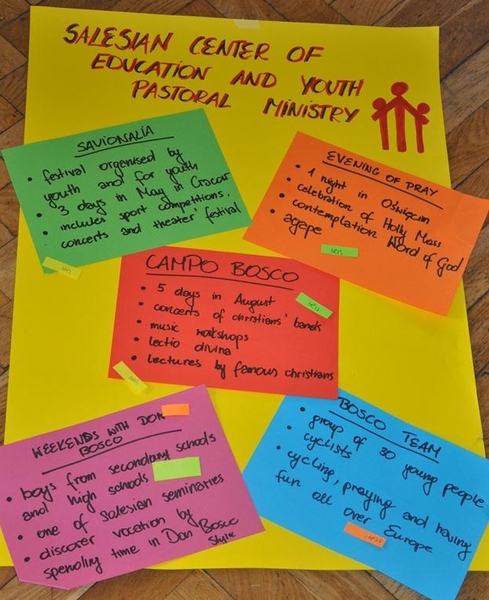 SALESIAN CENTER OF
EDUCATION AND YOUTH
PASTORAL MINISTRY
SAVIONALIA
• festival organised by
youth and for youth
• 3 days in May in Cracow
• includes sport competitions,
concerts and theater' festival
EVENING OF PRAY
• 1 night in Oświęcim
• celebration of Holly Mass
• contemplation Word of God
• agepe
CAMPO BOSCO
• 5 days in August
• concerts of christians' bands
• music workshops
• lectio divina
• lectures by famous christians
WEEKENDS WITH DON
BOSCO
• boys from secondary schools
and high schools
• one of Salesian seminaries
• discover vocation by
spending time in Don Bosco
style
BOSCO TEAM
• group of 30 young people
• cyclists
• cycling, praying and having
fun all over Europe